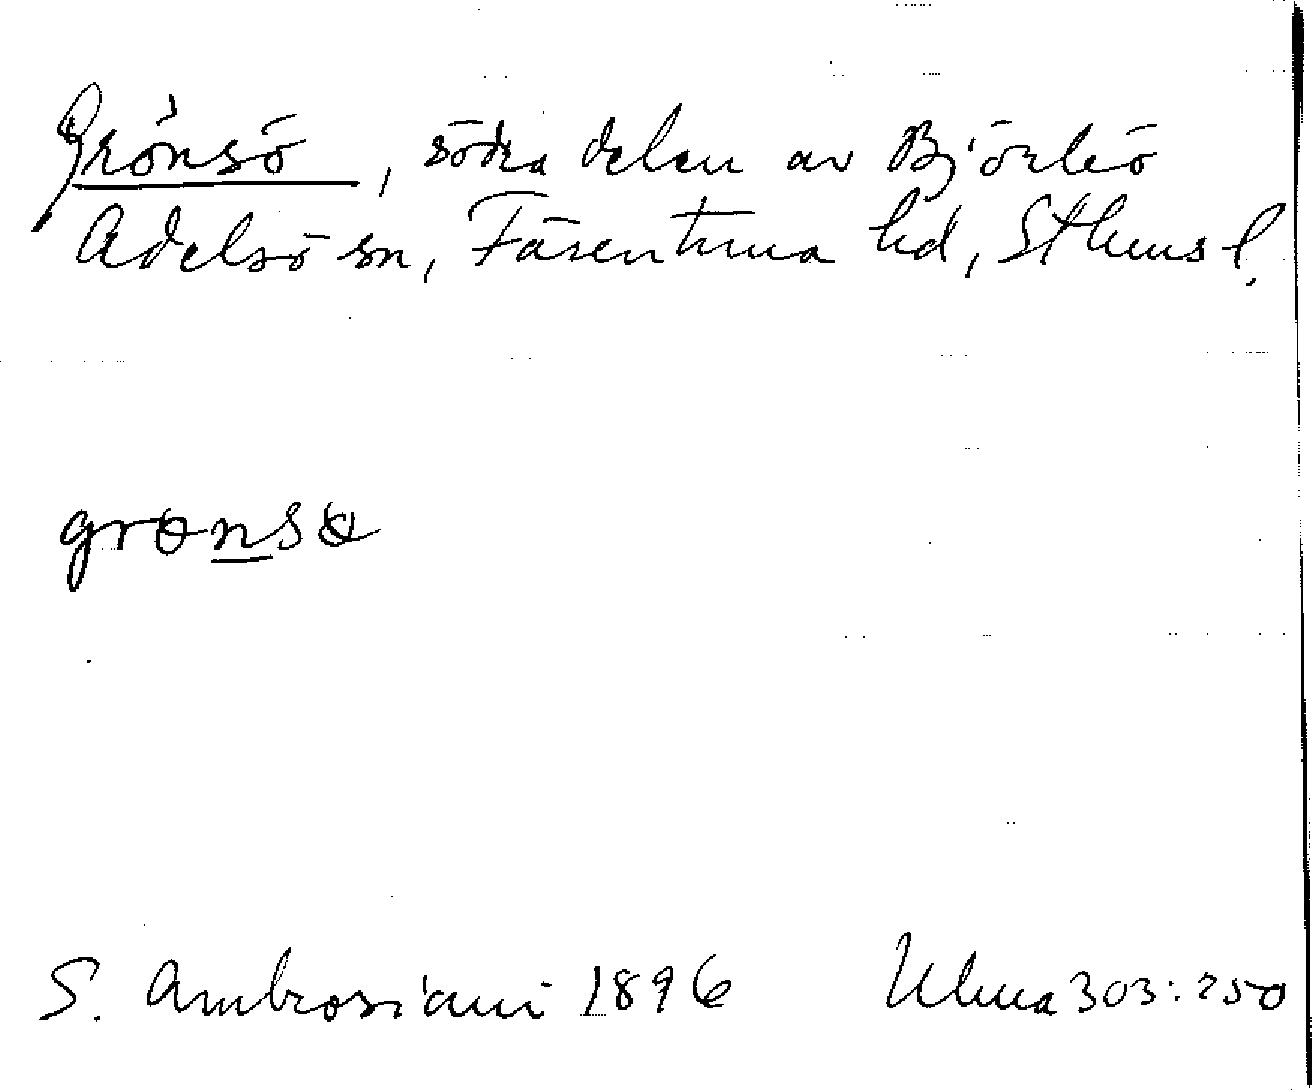 Grönsö, södra delen av Björkö
Adelsö sn, Färentuna hd, Sthms l.
grɵnsɵ
S. Ambrosiani 1896 Ulma 303:250